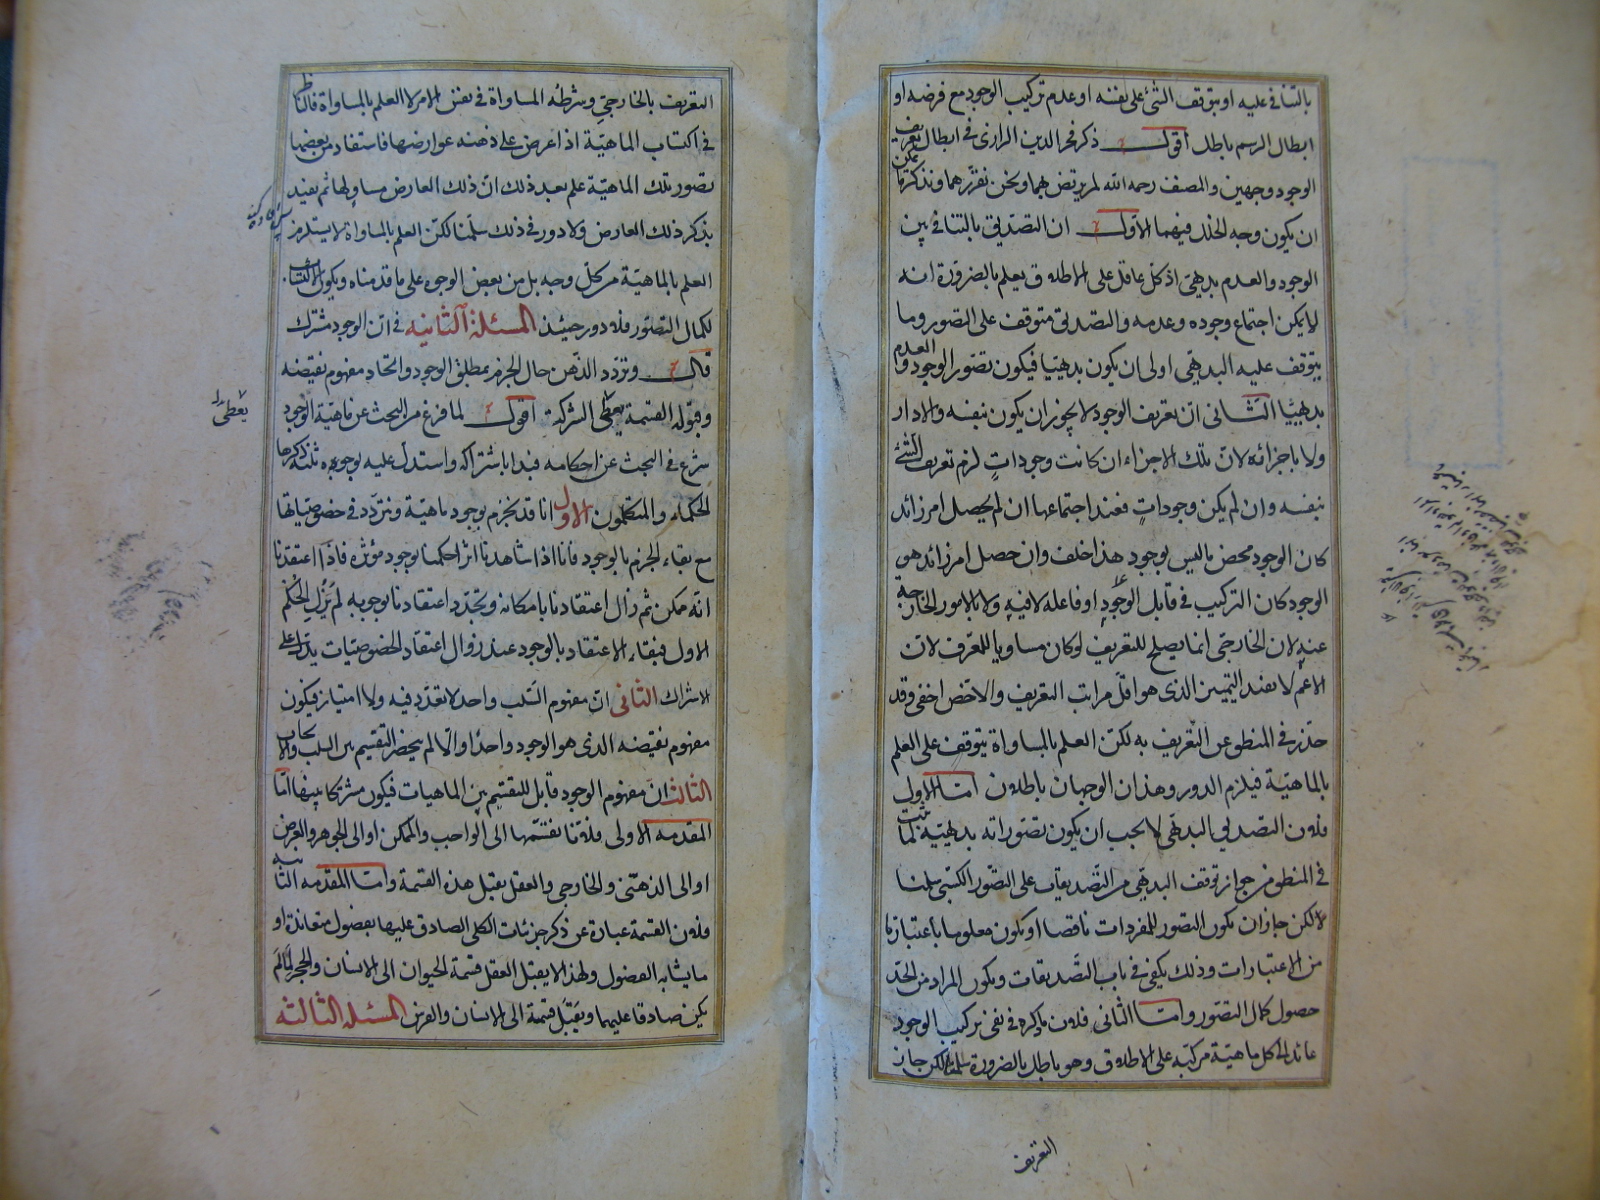 بالتنافي عليه او بتوقف الشئ على نفسه او عدم تركيب الوجود مع فرضه او
ابطال الرسم باطل اقول ذكر فخر الدين الرازى فى ابطال تعريف
الوجود وجهين والمصنف رحمه الله لم يرتض بهما ونحن نقررهما ونذكر ما يمكن
ان يكون وجه الخلل فيهما الاول ان التصديق بالتنافي بين
الوجود والعدم بديهى اذ كل عاقل على الاطلاق يعلم بالضرورة انه
لا يمكن اجتماع وجوده وعدمه والتصديق متوقف على التصور وما
يتوقف عليه البديهى اولى ان يكون بديهيا فيكون تصور الوجود والعدم
بديهيا الثانى ان تعريف الوجود لا يجوز ان يكون بنفسه والا دار
ولا باجزائه لان تلك الاجزاء ان كانت وجودات لزم تعريف الشئ
بنفسه وان لم يكن وجودات فعند اجتماعها ان لم يحصل امر زائد
كان الوجود محض ما ليس بوجود هذا خلف وان حصل امر زائد هو
الوجود كان التركيب فى قابل الوجود او فاعله لا فيه ولا بالامور الخارجة
عنه لان الخارجى انما يصلح للتعريف لو كان مساويا للمعرف لان
الاعم لا يفيد التميين الذى هو اقل مراتب التعريف والاخص اخفى وقد
حذر فى المنطق عن التعريف به لكن العلم بالمساواة يتوقف على العلم
بالماهية فيلزم الدور وهذان الوجهان باطلان اما الاول
فلان التصديق البديهى لا يجب ان يكون تصوراته بديهية لما ثبت
فى المنطق من جواز توقف البديهى من التصديقات على التصور الكسبى سلمنا
لكن جاز ان يكون التصور للمفردات ناقصا او يكون معلوما باعتبار ما
من الاعتبارات وذلك يكفى فى باب التصديقات ويكون المراد من الحد
حصول كمال التصور واما الثانى فلان ما ذكره فى نفى تركيب الوجود
عائد الى كل ماهية مركبة على الاطلاق وهو باطل بالضرورة سلمنا لكن جاز
التعريف
التعريف بالخارجى وشرطه المساواة فى نفس الامر لا العلم بالمساواة فالناظر
فى اكتساب الماهية اذا عرض على ذهنه عوارضها فاستفاد من بعضها
تصور تلك الماهية علم بعد ذلك ان ذلك العارض مساو لها ثم يفيد
بذكر ذلك العارض ولا دور فى ذلك سلمنا لكن العلم بالمساواة لا يستلزم
العلم بالماهية من كل وجه بل من بعض الوجوه على ما قدمناه ويكون الاكتساب
لكمال التصور فلا دور حينئذ المسئلة الثانية فى ان الوجود مشترك
قال وتردد الذهن حال الجزم بمطلق الوجود واتحاد مفهوم نقيضه
وقبوله القسمة يعطى الشركة اقول لما فرغ من البحث عن ماهية الوجود
يعطى
شرع فى البحث عن احكامه فبدا باشتراكه واستدل عليه بوجوه ثلثة ذكرها
الحكماء والمتكلمون الاول انا قد نجزم بوجود ماهية ونتردد فى خصوصياتها
مع بقاء الجزم بالوجود فانا اذا شاهدنا اثرا حكمنا بوجود مؤثره فاذا اعتقدنا
انه ممكن ثم زال اعتقادنا بامكانه وتجدد اعتقادنا بوجوبه لم يزل الحكم
الاول فبقاء الاعتقاد بالوجود عند زوال اعتقاد الخصوصيات يدل على
الاشراك الثانى ان مفهوم السلب واحد لا تعدد فيه ولا امتياز فيكون
مفهوم نقيضه الذى هو الوجود واحدا والا لم ينحصر التقسيم بين السلب والايجاب
الثالث ان مفهوم الوجود قابل للتقسيم بين الماهيات فيكون مشتركا بينها اما
المقدمه الاولى فلانا نقسمها الى الواجب والممكن او الى الجوهر والعرض
او الى الذهنى والخارجى والعقل يقبل هذه القسمة واما المقدمه الثانيه
فلان القسمة عبارة عن ذكر جزئيات الكلى الصادق عليها بفصول متعاندة او
ما يشابه الفصول ولهذا لا يقبل العقل قسمة الحيوان الى الانسان والحجر لما لم
يكن صادقا عليهما ويقبل قسمة الى الانسان والفرس المسئلة الثالثه